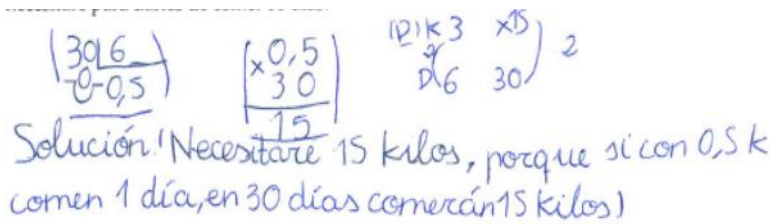 30 6 0,5 (D) K 3 x 15 2
-0-0,5 x 30 D 6 30
15
Solución: (Necesitaré 15 kilos, porque si con 0,5 k
comen 1 día, en 30 días comerán 15 kilos)